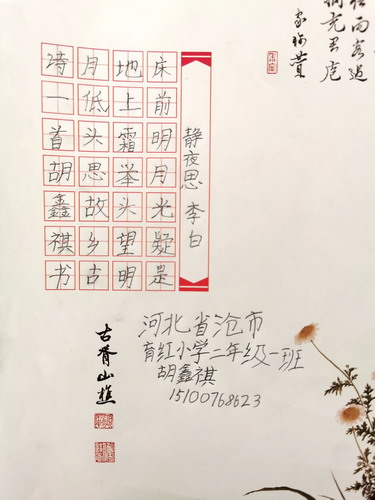 静夜思 李白
床前明月光疑是
地上霜举头望明
月低头思故乡古
诗一首胡鑫祺书
河北省沧市
育红小学二年级一班
胡鑫祺
15100768623